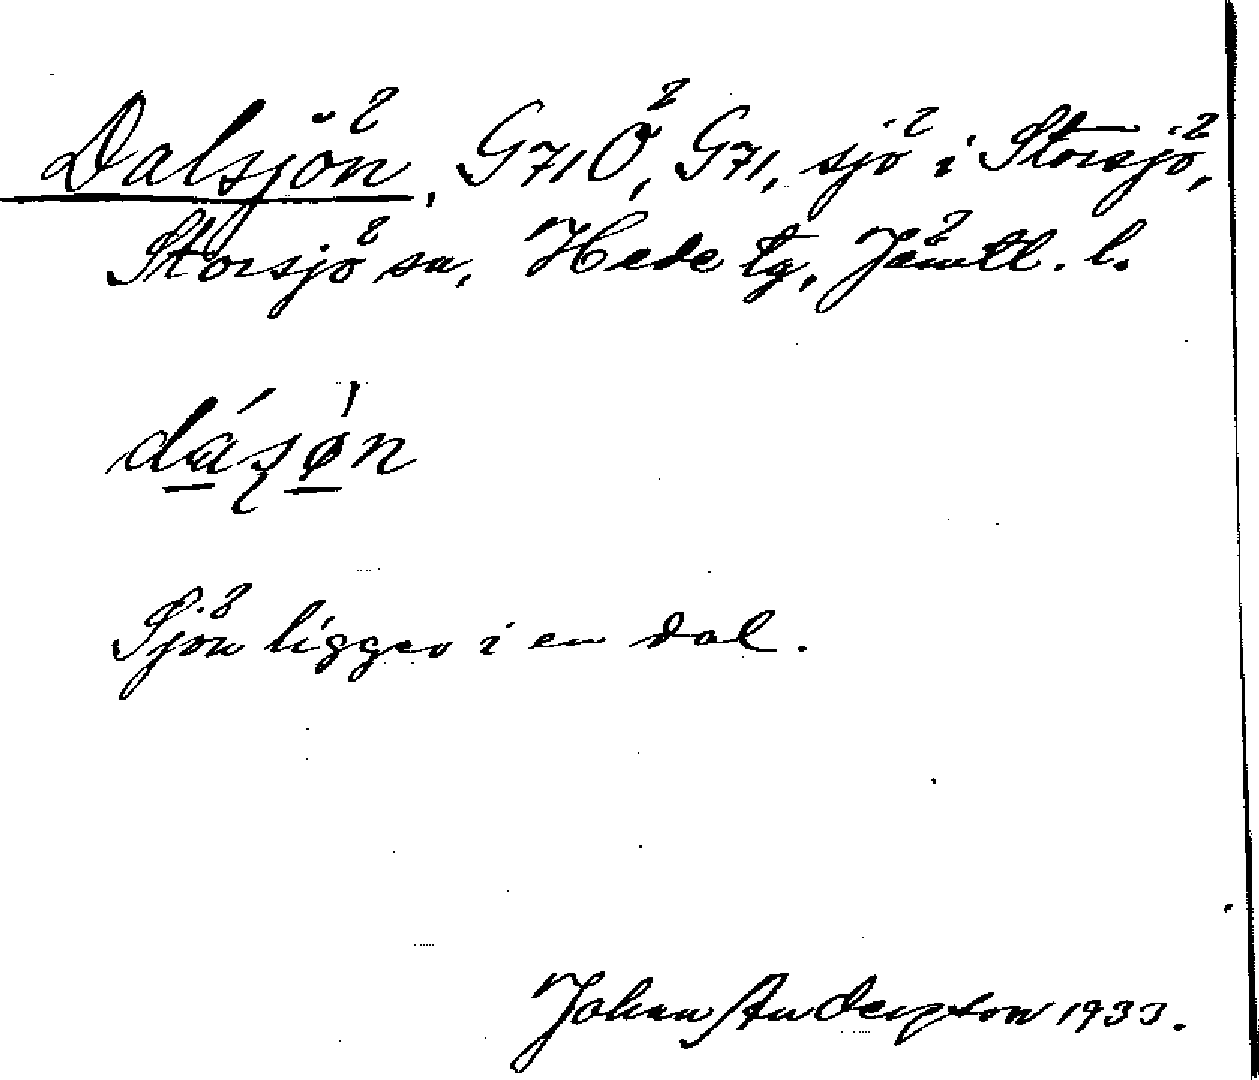 Dalsjön, G71Ö, G71, sjö i Storsjö,
Storsjö sn, Hede tg, Jämtl. l.
Sjön ligger i en dal.
Johan Andersson 1933.